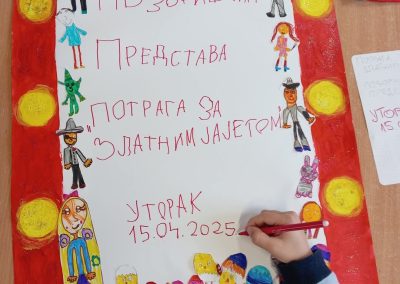 ПОЗОРИШНА
ПРЕДСТАВА
„ПОТРАГА ЗА
ЗЛАТНИМ ЈАЈЕТОМ"
УТОРАК
15.04.2025.
УТОРАК
15.0